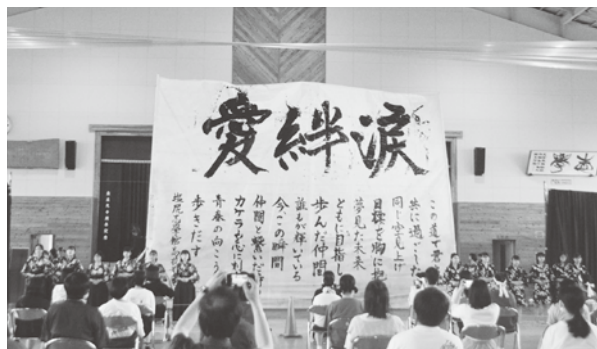 涙絆愛
この道で
共に過ごした
同じ空見上げ
目標を胸に抱
夢見た未来
ともに目指し
歩んだ仲間
誰もが輝いている
今この瞬間
仲間と繋いだ
カケラを
青春の向こう
歩きだす
塩尻志学館